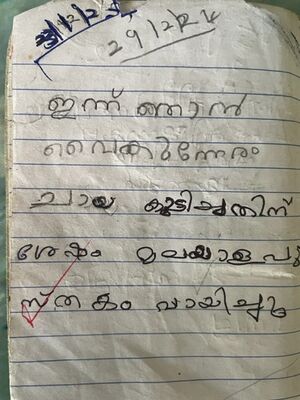 29/2/24
ഇന്ന് ഞാൻ
വൈകുന്നേരം
ചായ കുടിച്ചതിന്
ശേഷം മലയാള പു
സ്തകം വായിച്ചു